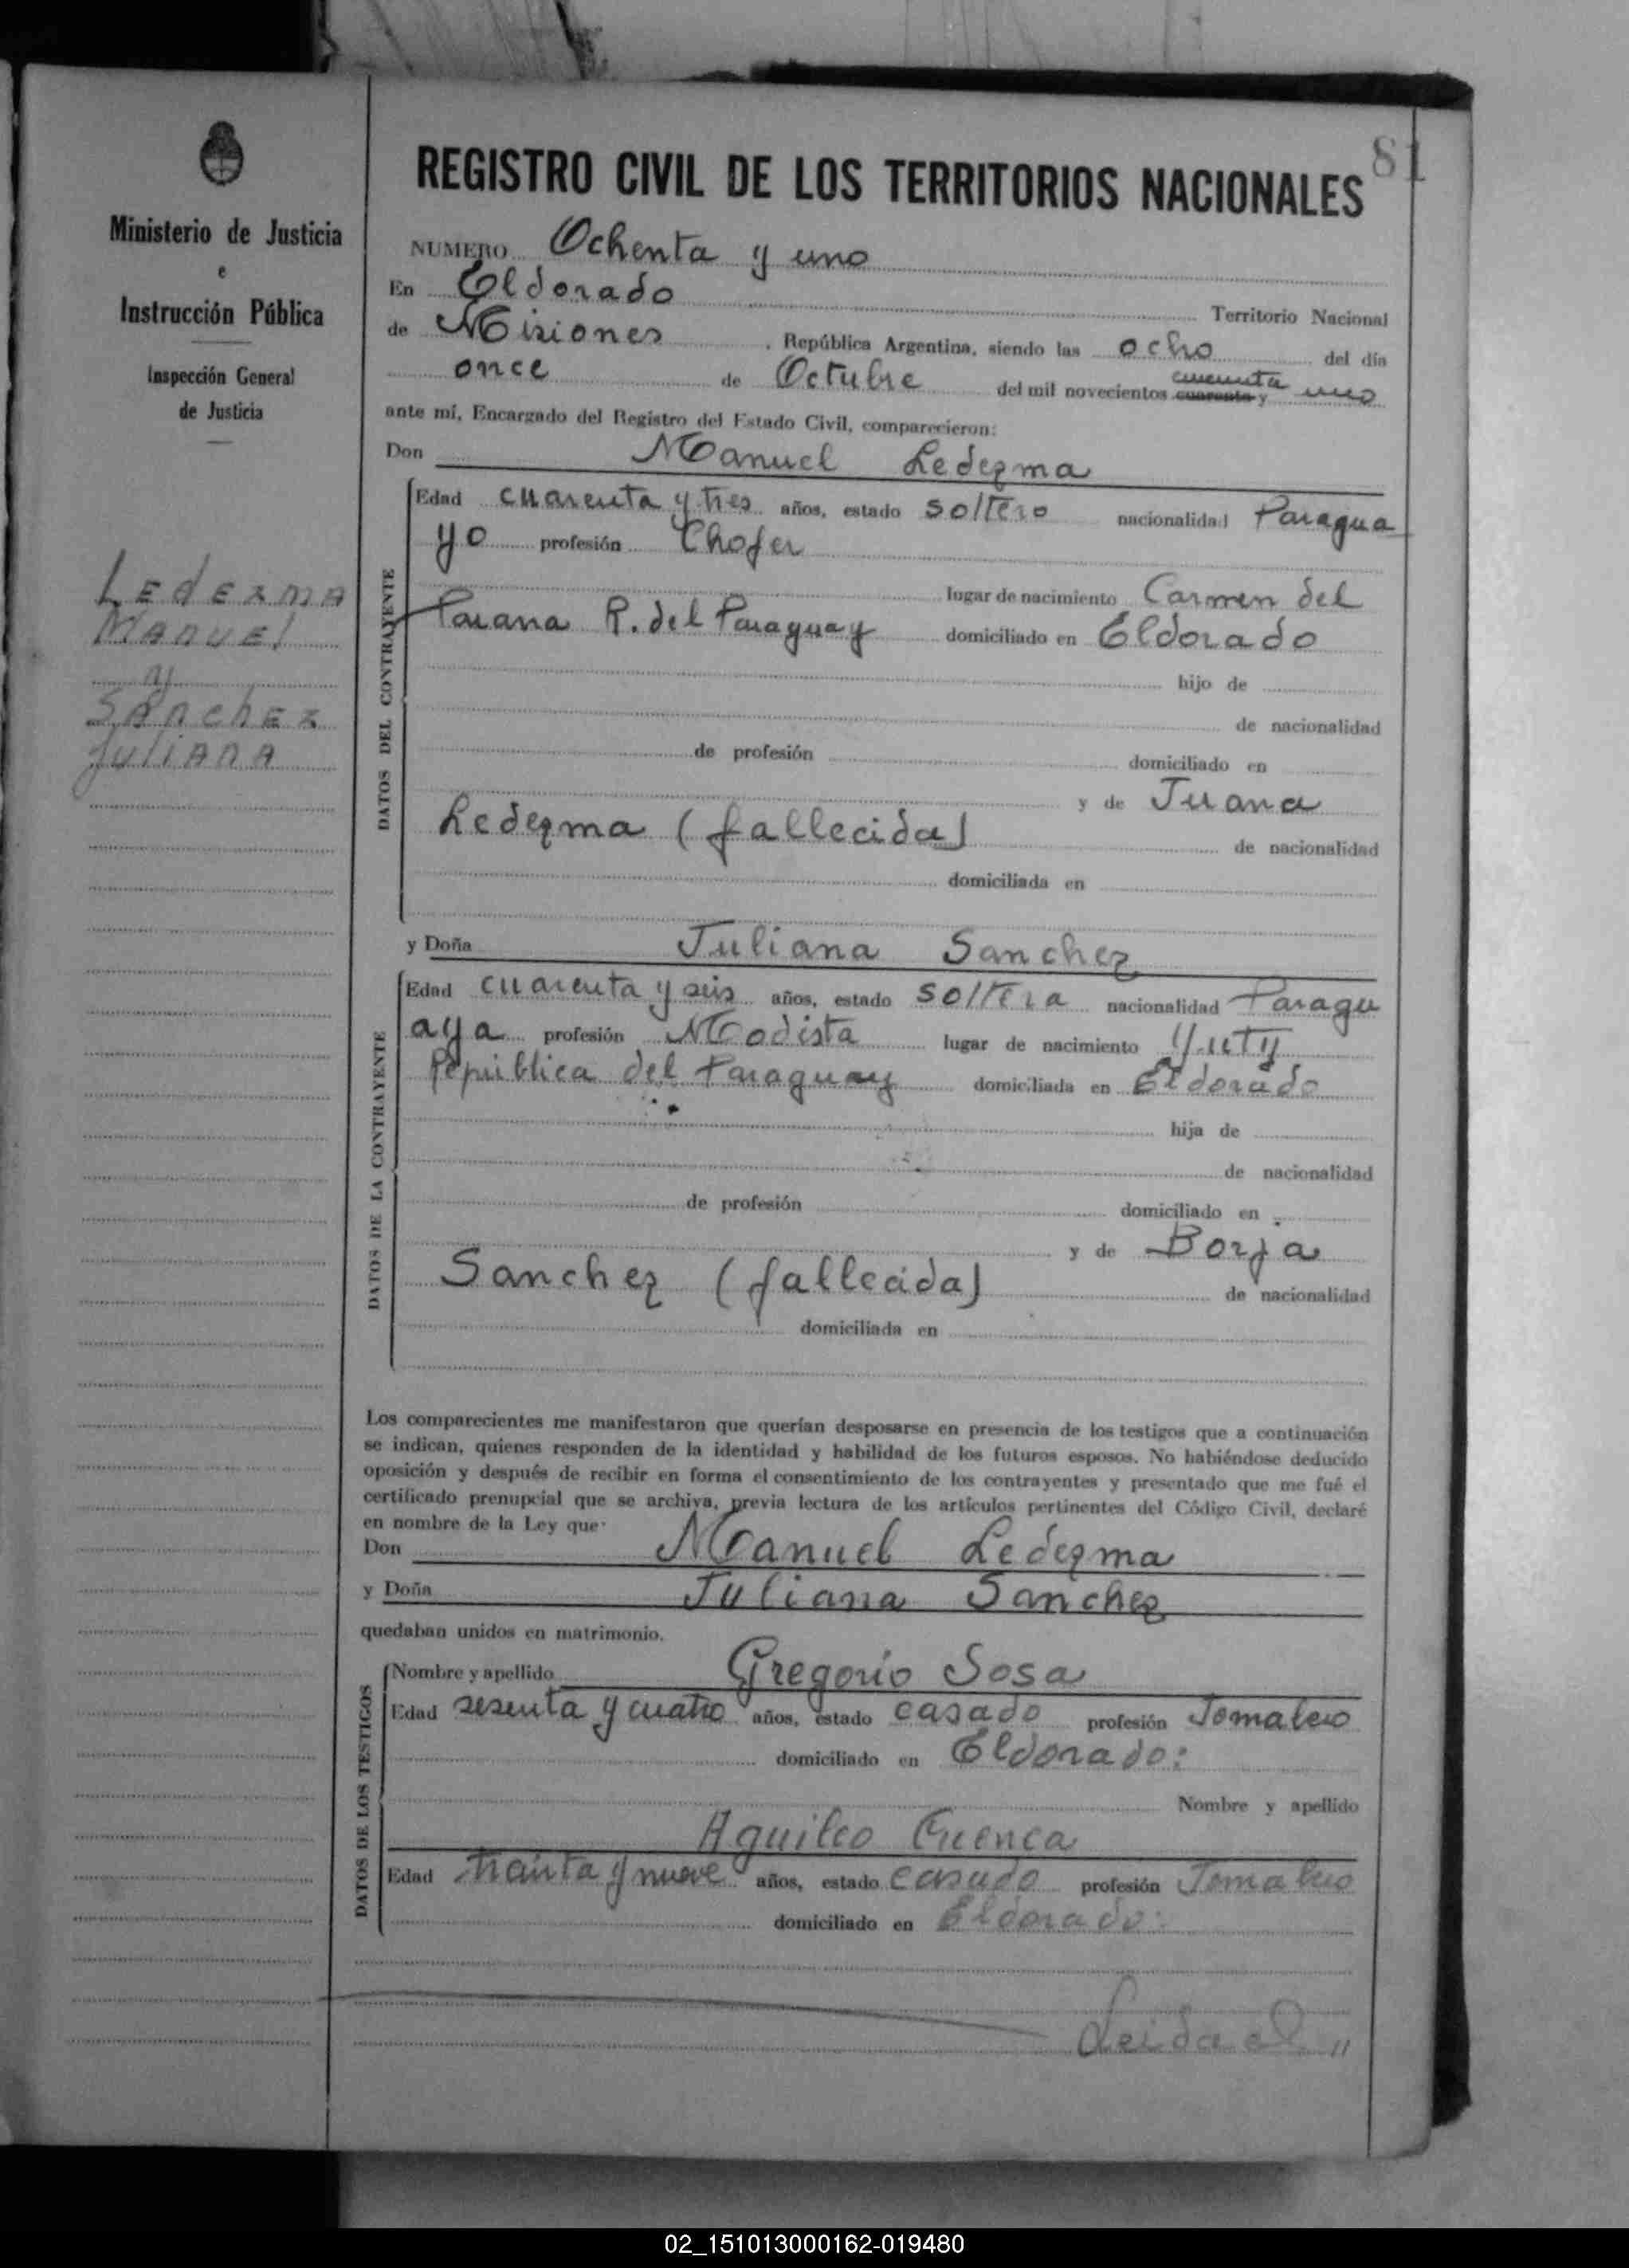 81
REGISTRO CIVIL DE LOS TERRITORIOS NACIONALES
Ministerio de Justicia
e
Instrucción Pública
Inspección General
de Justicia
LEDEZMA
MANUEL
y
SANCHEZ
JULIANA
NUMERO Ochenta y uno
En Eldorado Territorio Nacional
de Misiones, República Argentina, siendo las ocho del día
once de Octubre del mil novecientos cuarenta y cincuenta uno
ante mí, Encargado del Registro del Estado Civil, comparecieron:
Don Manuel Ledezma
DATOS DEL CONTRAYENTE
Edad cuarenta y tres años, estado soltero nacionalidad Paragua
yo profesión Chofer
lugar de nacimiento Carmen del
Parana R. del Paraguay domiciliado en Eldorado
hijo de
de nacionalidad
de profesión domiciliado en
y de Juana
Ledezma (fallecida) de nacionalidad
domiciliada en
y Doña Juliana Sanchez
DATOS DE LA CONTRAYENTE
Edad cuarenta y seis años, estado soltera nacionalidad Paragu
aya profesión Modista lugar de nacimiento Yuty
República del Paraguay domiciliada en Eldorado
hija de
de nacionalidad
de profesión domiciliado en
y de Borja
Sanchez (fallecida) de nacionalidad
domiciliada en
Los comparecientes me manifestaron que querían desposarse en presencia de los testigos que a continuación
se indican, quienes responden de la identidad y habilidad de los futuros esposos. No habiéndose deducido
oposición y después de recibir en forma el consentimiento de los contrayentes y presentado que me fué el
certificado prenupcial que se archiva, previa lectura de los artículos pertinentes del Código Civil, declaré
en nombre de la Ley que:
Don Manuel Ledezma
y Doña Juliana Sanchez
quedaban unidos en matrimonio.
DATOS DE LOS TESTIGOS
Nombre y apellido Gregorio Sosa
Edad sesenta y cuatro años, estado casado profesión Jornalero
domiciliado en Eldorado:
Nombre y apellido
Aquileo Cuenca
Edad treinta y nueve años, estado casado profesión Jornalero
domiciliado en Eldorado:
Leida el "
02_151013000162-019480